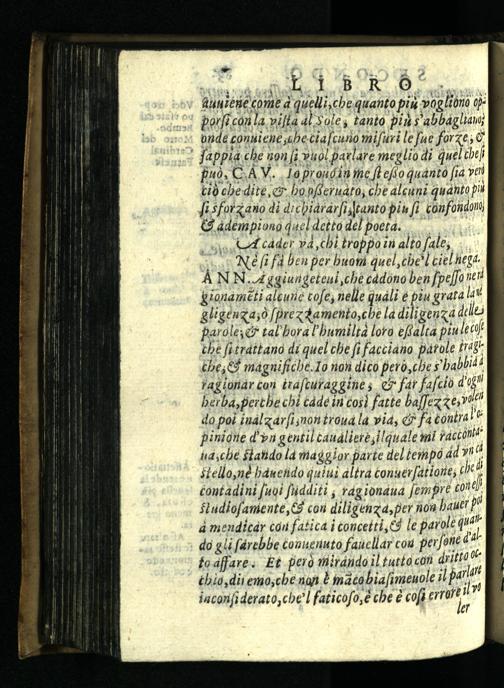 LIBRO
auuiene come à quelli, che quanto più vogliono op-
porsi con la vista al Sole, tanto più s'abbagliano;
onde conuiene, che ciascuno misuri le sue forze, &
sappia che non si vuol parlare meglio di quel che si
può. CAV. Io prouo in me stesso quanto sia vero
ciò che dite, & ho osseruato, che alcuni quanto più
si sforzano di dichiararsi, tanto piu si confondono,
& adempiono quel detto del poeta.
A cader và, chi troppo in alto sale,
Nè si fà ben per huom quel, che'l ciel nega.
ANN. Aggiungeteui, che cadono ben spesso ne'ra
gionamẽti alcune cose, nelle quali è piu grata la ne
gligenza, ò sprezzamento, che la diligenza delle
parole; & tal'hora l'humiltà loro essalta piu le cose
che si trattano di quel che si facciano parole tragi-
che, & magnifiche. Io non dico però, che s'habbia à
ragionar con trascuraggine, & far fascio d'ogni
herba, perche chi cade in così fatte bassezze, volen
do poi inalzarsi, non troua la via, & fa contra l'o-
pinione d'vn gentil caualiere, il quale mi racconta-
ua, che stando la maggior parte del tempo ad vn ca
stello, nè hauendo quiui altra conuersatione, che di
contadini suoi sudditi, ragionaua sempre con essi
studiosamente, & con diligenza, per non hauer poi
à mendicar con fatica i concetti, & le parole quan-
do gli sarebbe conuenuto fauellar con persone d'al-
to affare. Et però mirando il tutto con dritto oc-
chio, diremo, che non è mãco biasimeuole il parlare
inconsiderato, che'l faticoso, è che è così errore il vo
ler